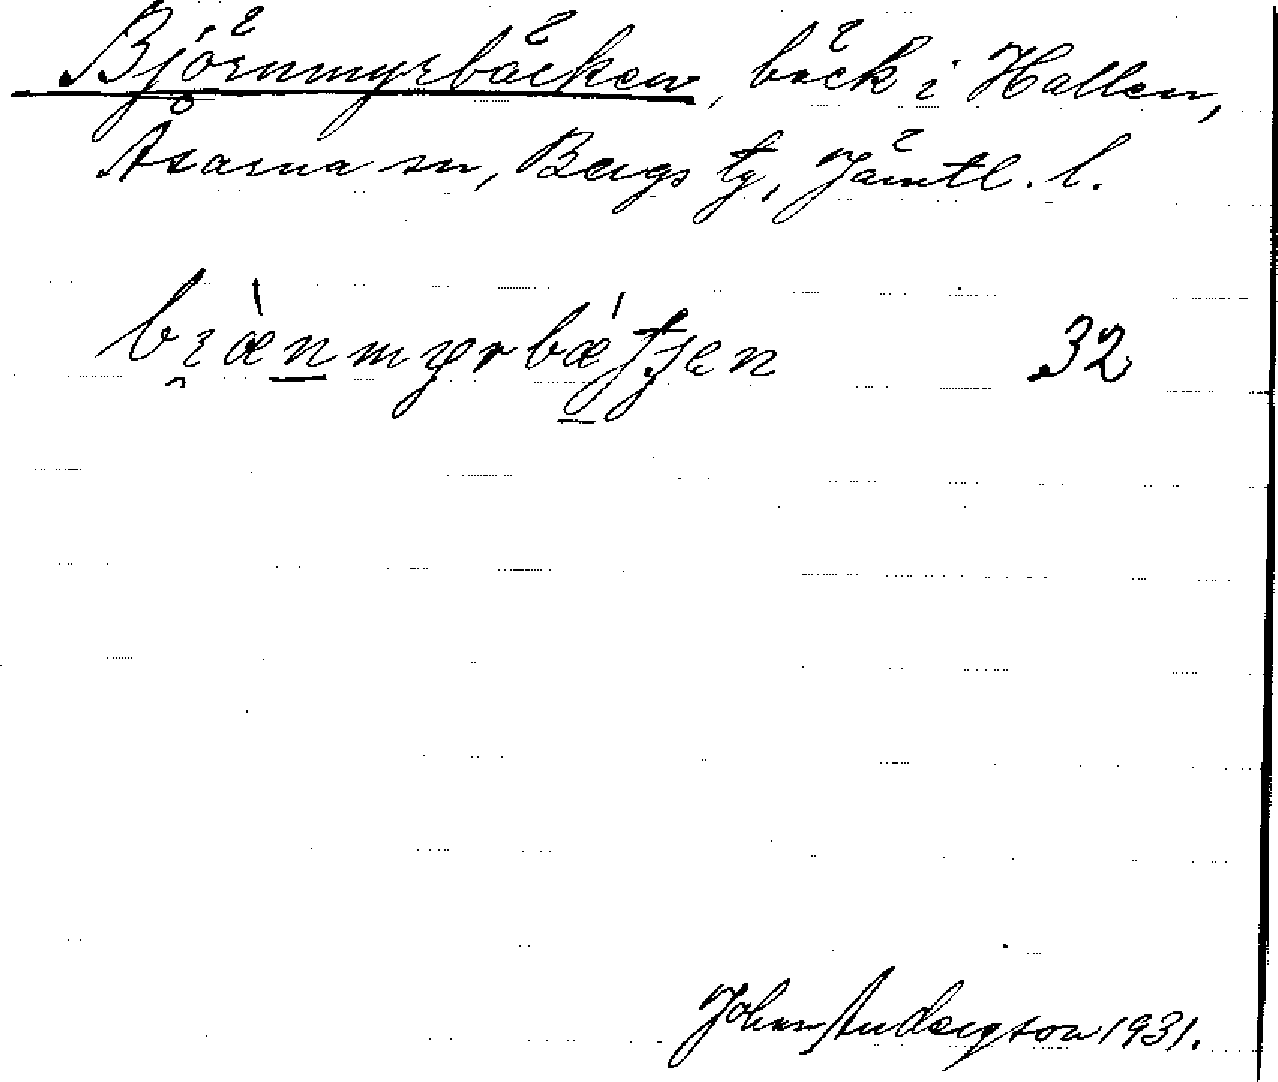 Björnmyrbäcken, bäck i Hallen,
Åsarna sn, Bergs tg, Jämtl. l.
32
John Andersson 1931.